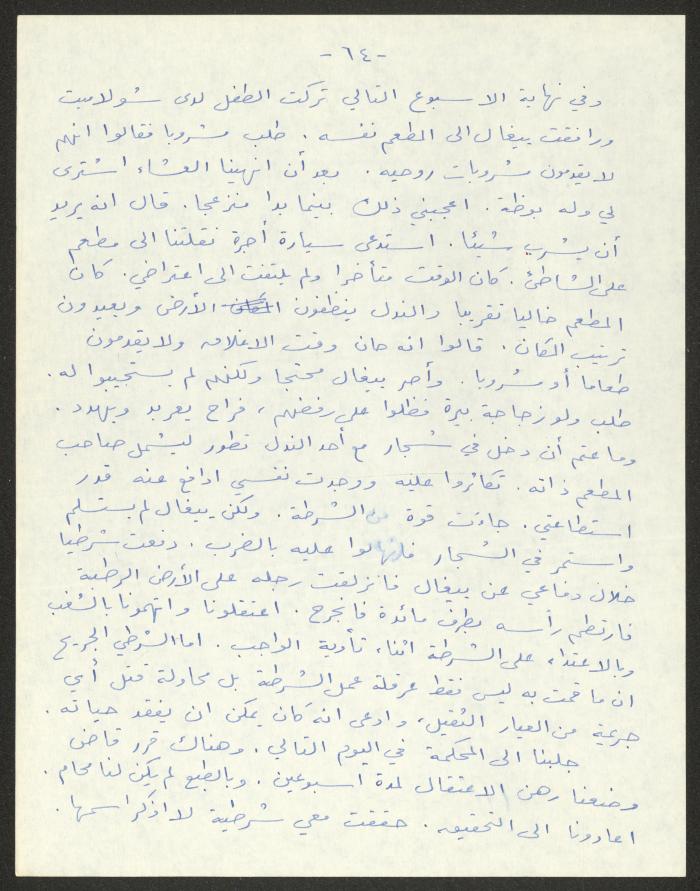 - ٦٤ -
وفي نهاية الاسبوع التالي تركت الطفل لدى شولاميت
ورافقت ييغال الى المطعم نفسه. طلب مشروبا فقالوا انهم
لا يقدمون مشروبات روحيه. بعد أن انهينا العشاء اشترى
لي وله بوظة. اعجبني ذلك بينما بدا منزعجا. قال انه يريد
أن يشرب شيئا. استدعى سيارة أجرة نقلتنا الى مطعم
على الشاطئ. كان الوقت متأخرا ولم يلتفت الى اعتراضي. كان
المطعم خاليا تقريبا والندل ينظفون الأرض ويعيدون
ترتيب المكان. قالوا انه حان وقت الاغلاق ولا يقدمون
طعاما أو مشروبا. وأصر ييغال محتجا ولكنهم لم يستجيبوا له.
طلب ولو زجاجة بيرة فظلوا على رفضهم، فراح يعربد ويهدد.
وما عتم أن دخل في شجار مع أحد الندل تطور ليشمل صاحب
المطعم ذاته. تكاثروا عليه ووجدت نفسي ادافع عنه قدر
استطاعتي. جاءت قوة من الشرطة. ولكن ييغال لم يستسلم
واستمر في الشجار فانهالوا عليه بالضرب. دفعت شرطيا
خلال دفاعي عن ييغال فانزلقت رجله على الأرض الرطبة
فارتطم رأسه بطرف مائدة فانجرح. اعتقلونا واتهمونا بالشغب
وبالاعتداء على الشرطة اثناء تأدية الواجب. اما الشرطي الجريح
ان ما قمت به ليس فقط عرقلة عمل الشرطة بل محاولة قتل أي
جريمة من العيار الثقيل، وادعى انه كان يمكن ان يفقد حياته.
جلبنا الى المحكمة في اليوم التالي. وهناك قرر قاض
وضعنا رهن الاعتقال لمدة اسبوعين. وبالطبع لم يكن لنا محام.
اعادونا الى التحقيق. حققت معي شرطية لا اذكر اسمها.